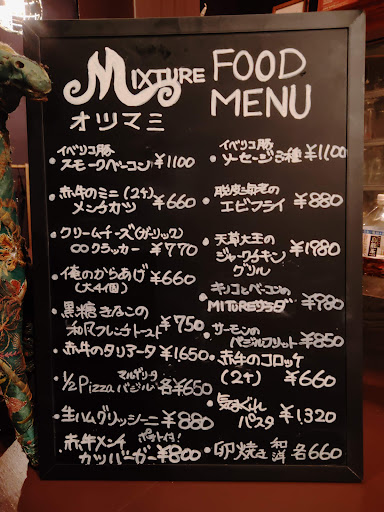 MIXTURE FOOD MENU
オツマミ
イベリコ豚
スモークベーコン ¥1100
赤牛のミニ(2ケ)
メンチカツ ¥660
クリームチーズ(ガーリック)
○○クラッカー ¥770
俺のからあげ ¥660
(大4個)
黒糖きなこの
和風フレンチトースト ¥750
赤牛のタリアータ ¥1650
1/2 Pizza マルゲリタ
バジル 各¥650
生ハムグリッシーニ ¥880
赤牛メンチ ポテト付!
カツバーガー ¥800
イベリコ豚
ソーセージ3種 ¥1100
脱皮海老の
エビフライ ¥880
天草大王の
ジャークチキン
グリル ¥1980
キノコとベーコンの
MITUREサラダ ¥780
サーモンの
バジルフリット ¥850
赤牛のコロッケ
(2ケ) ¥660
気まぐれ
パスタ ¥1,320
卵焼き 和 洋 各660